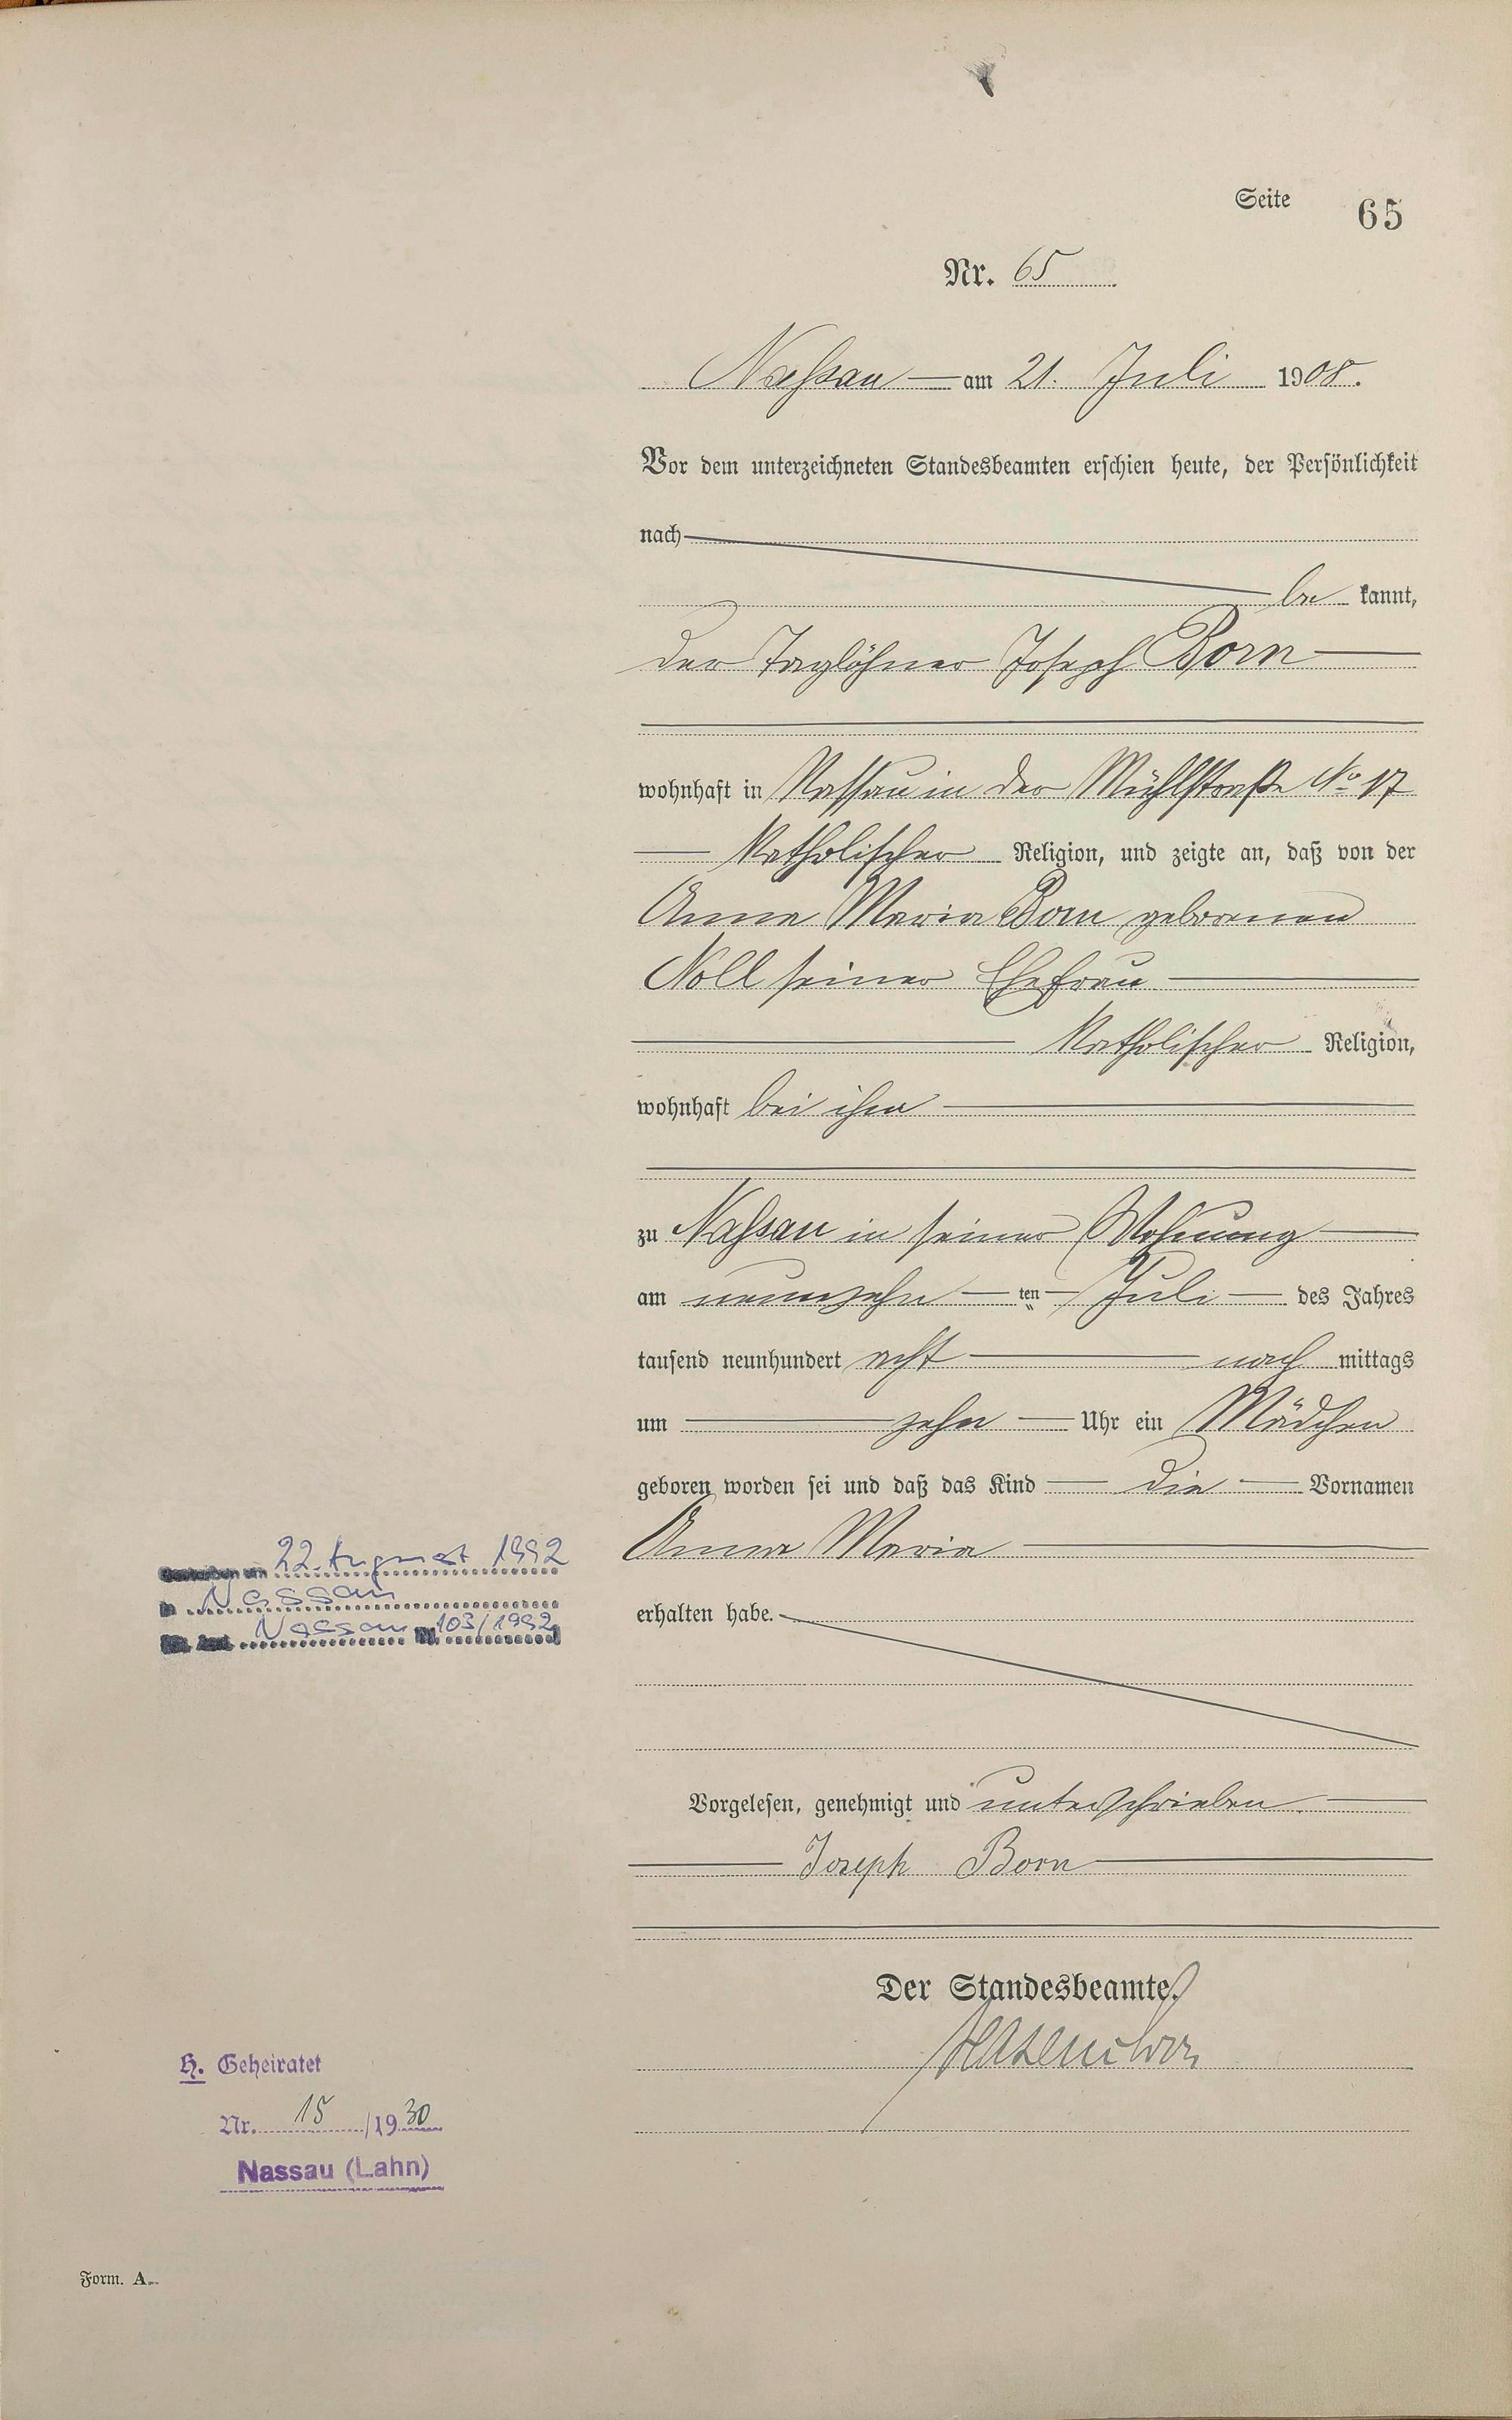 Seite 65
Nr. 65
Nassau am 21. Juli 1908.
Vor dem unterzeichneten Standesbeamten erschien heute, der Persönlichkeit
nach
be kannt,
der Taglöhner Joseph Born
wohnhaft in Nassau in der Mühlstraße No 17
katholischer Religion, und zeigte an, daß von der
Anna Maria Born geborenen
Noll seiner Ehefrau
katholischer Religion,
wohnhaft bei ihm
zu Nassau in seiner Wohnung
am neunzehn ten Juli des Jahres
tausend neunhundert acht nach mittags
um zehn Uhr ein Mädchen
geboren worden sei und daß das Kind die Vornamen
Anna Maria
erhalten habe.
Gestorben am 22. August 1992
in Nassau
Nassau Nr. 103/1992
Vorgelesen, genehmigt und unterschrieben
Joseph Born
Der Standesbeamte.
H. Geheiratet
Nr. 15 /1930
Nassau (Lahn)
Form. A.